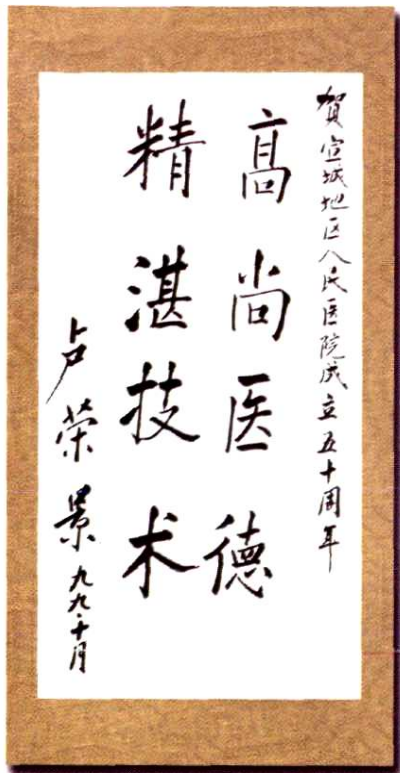 贺宣城地区人民医院成立五十周年
高尚医德
精湛技术
卢荣景
九九·十月